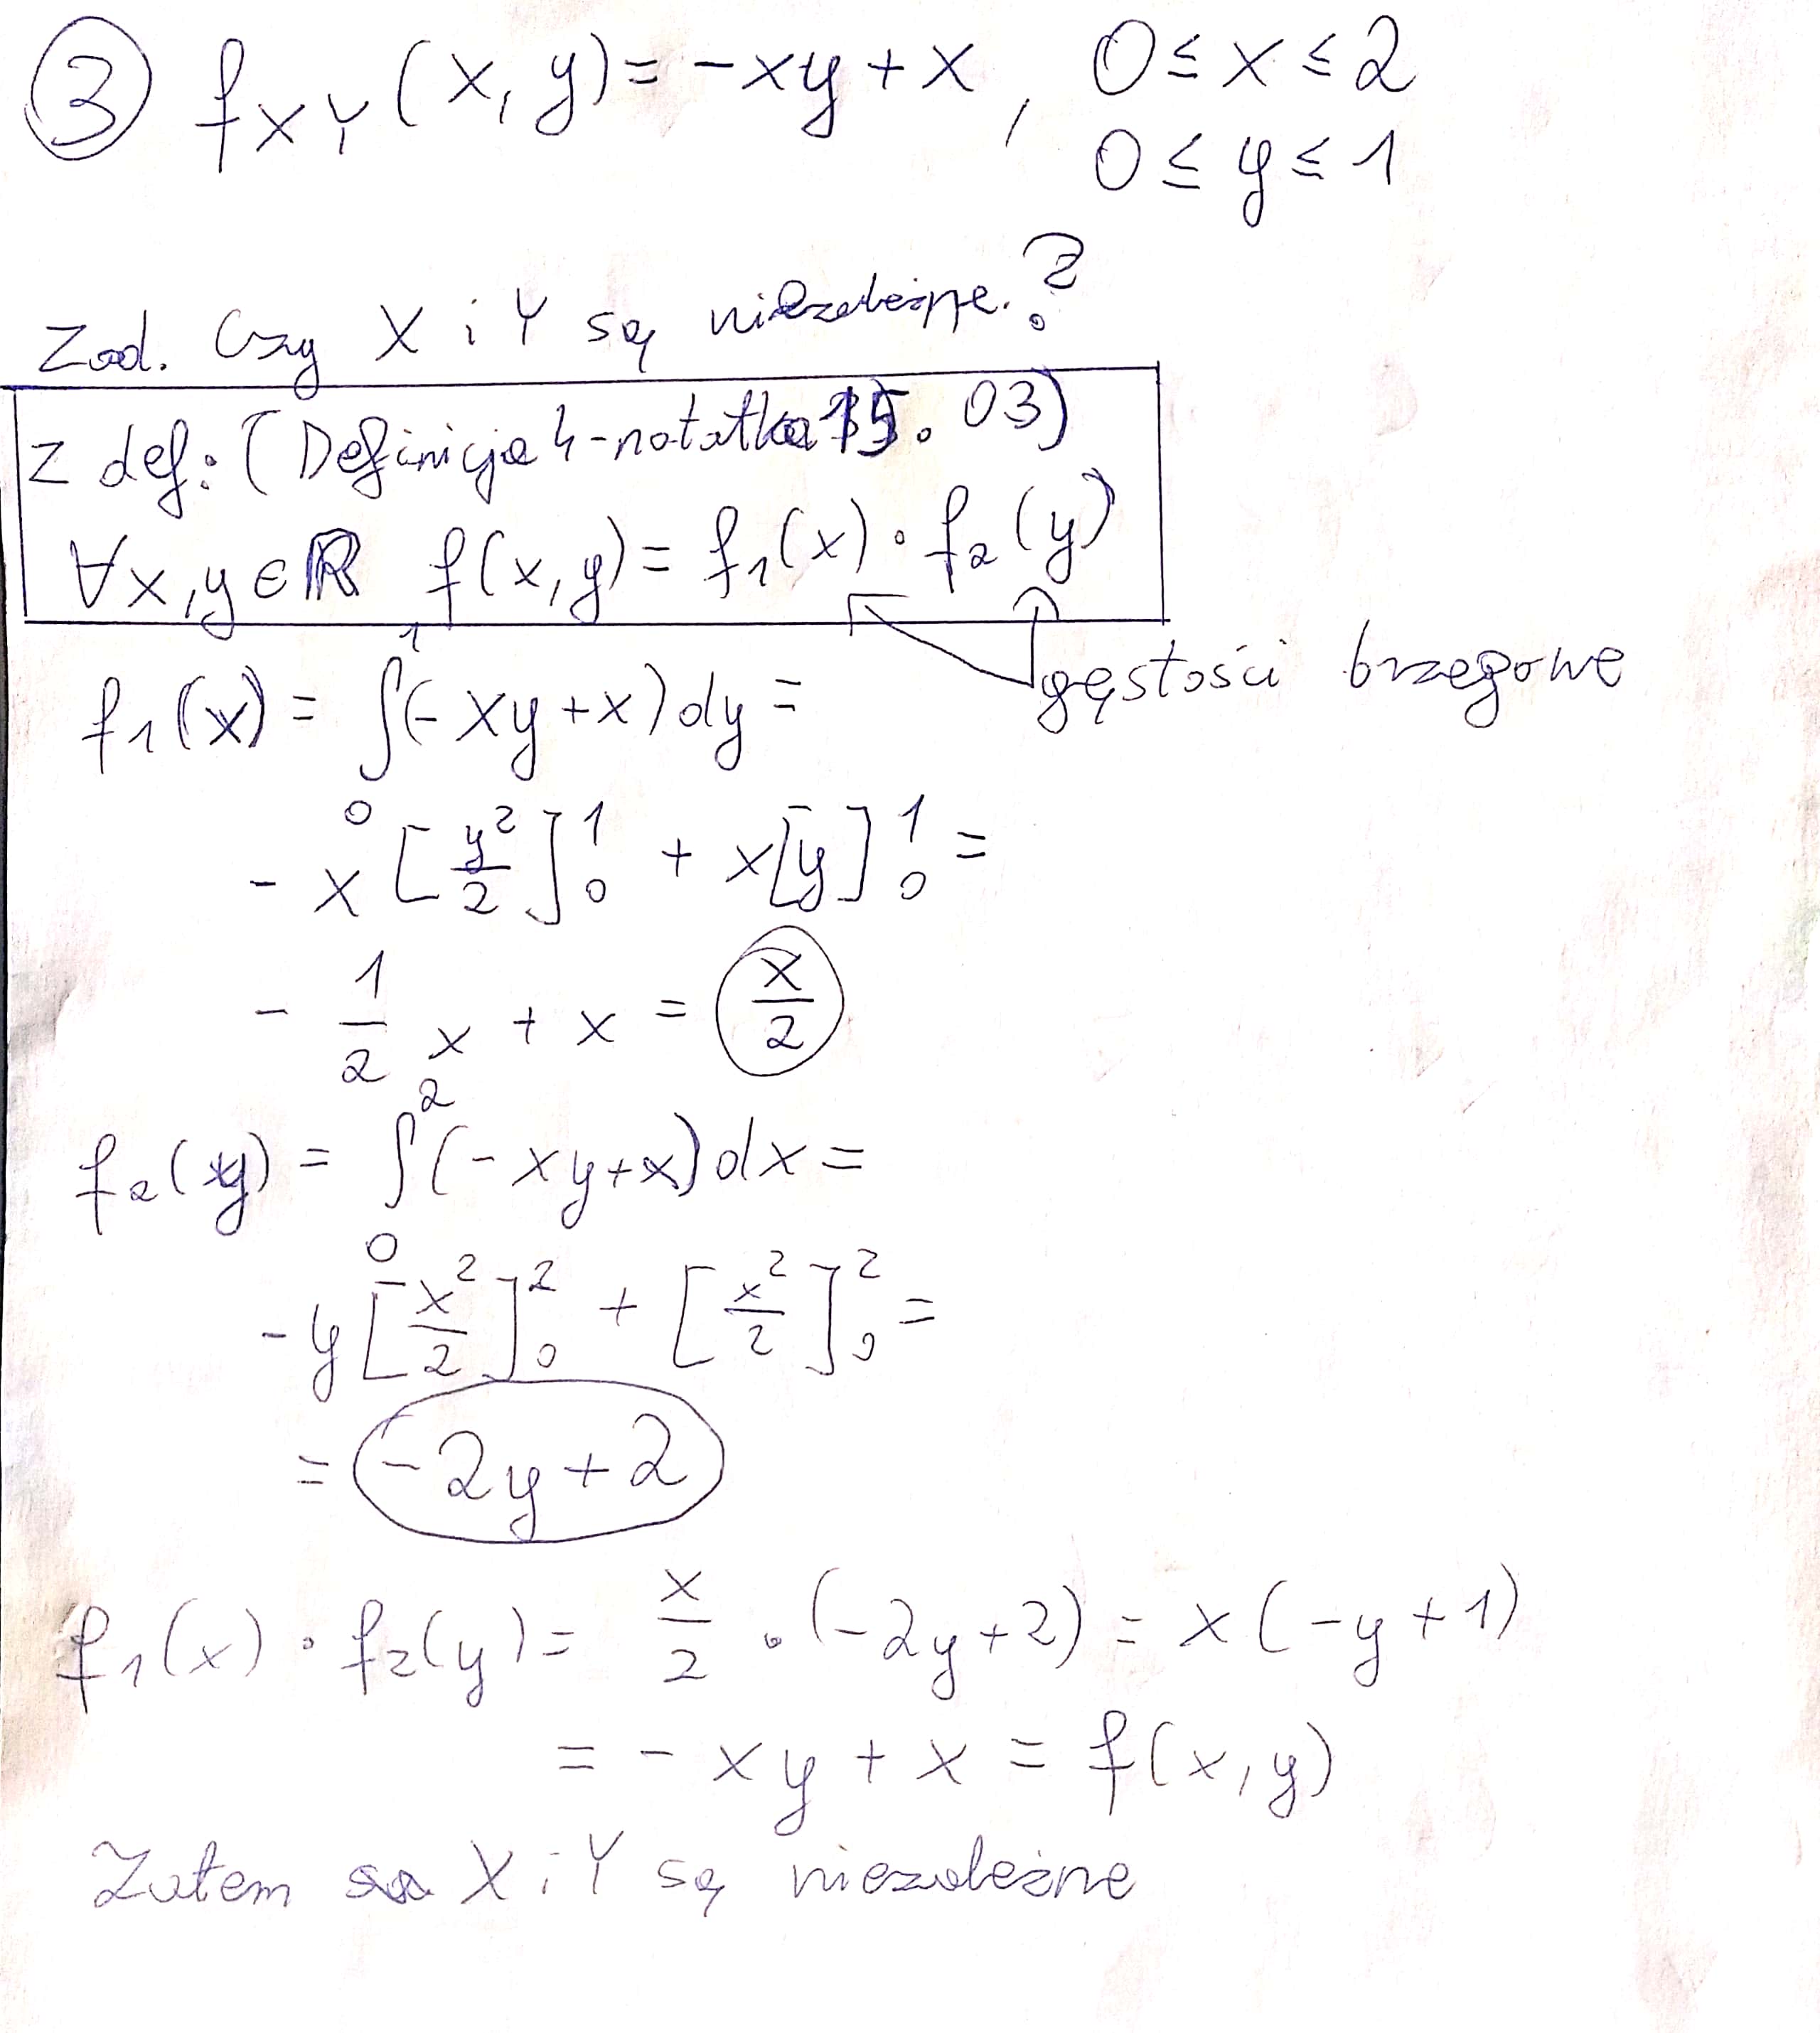 ③ f_XY(x, y) = -xy + x, 0 ≤ x ≤ 2
0 ≤ y ≤ 1
Zad. Czy X i Y są niezależne.?
z def: (Definicja 4-notatka 15. 03)
∀x,y ∈ ℝ f(x,y) = f₁(x) · f₂(y)
gęstości brzegowe
f₁(x) = ∫₀¹(-xy+x)dy =
-x[y²/2]₀¹ + x[y]₀¹ =
-1/2 x + x = x/2
f₂(y) = ∫₀²(-xy+x)dx =
-y[x²/2]₀² + [x²/2]₀² =
= -2y+2
f₁(x) · f₂(y) = x/2 · (-2y+2) = x(-y+1)
= -xy + x = f(x,y)
Zatem X i Y są niezależne